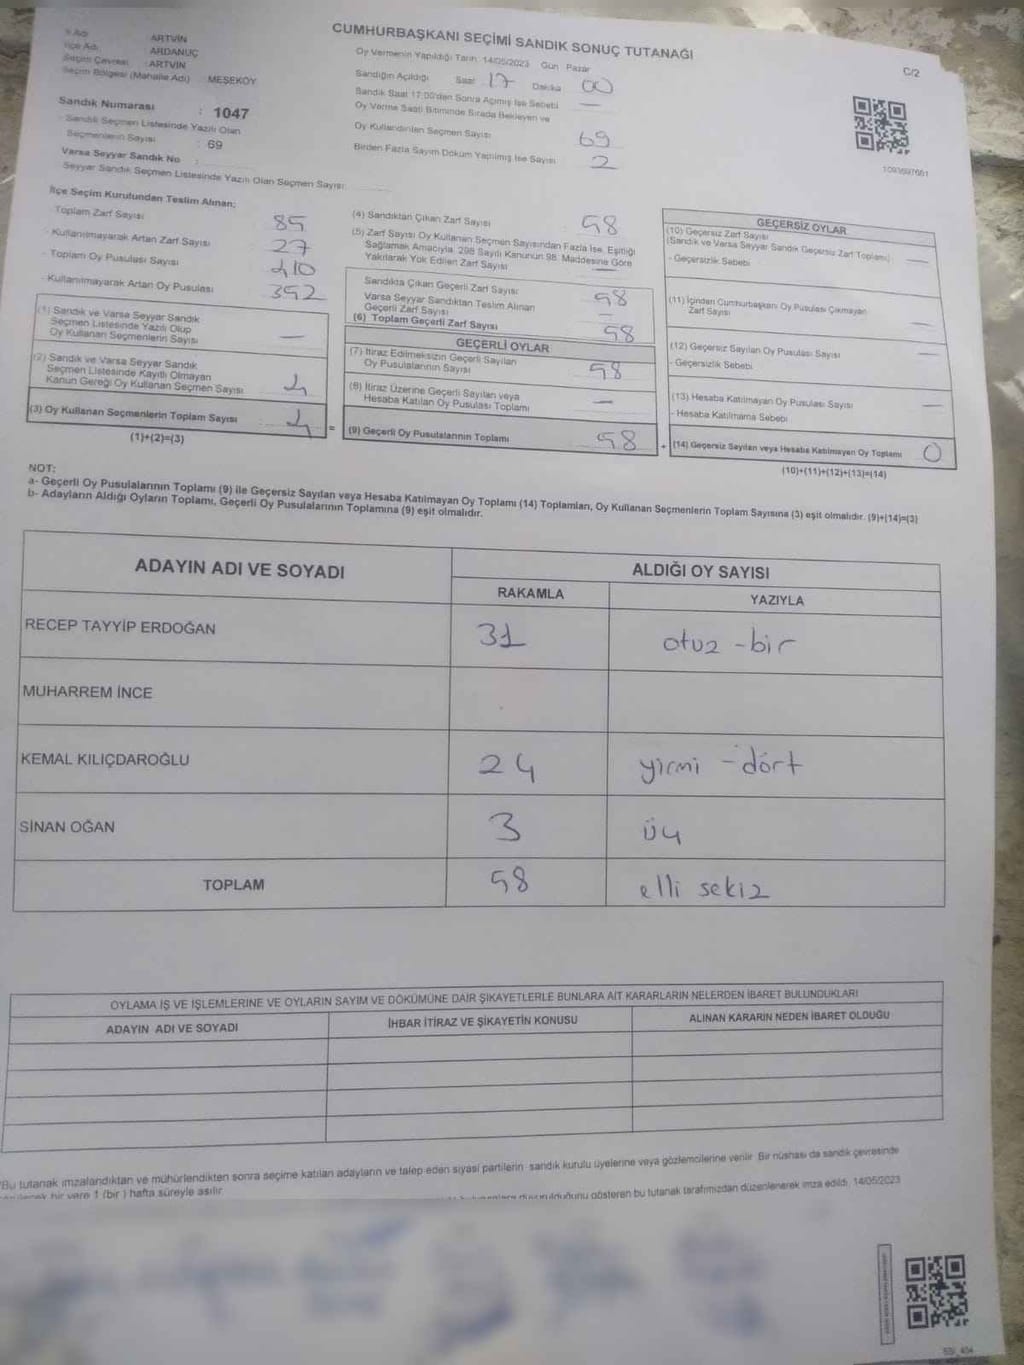 CUMHURBAŞKANI SEÇİMİ SANDIK SONUÇ TUTANAĞI
C/2
İl Adı ARTVİN
İlçe Adı ARDANUÇ
Seçim Çevresi : ARTVİN
Seçim Bölgesi (Mahalle Adı) MEŞEKÖY
Sandık Numarası : 1047
Sandık Seçmen Listesinde Yazılı Olan
Seçmenlerin Sayısı : 69
Varsa Seyyar Sandık No :
Seyyar Sandık Seçmen Listesinde Yazılı Olan Seçmen Sayısı:
Oy Vermenin Yapıldığı Tarih: 14/05/2023 Gün Pazar
Sandığın Açıldığı Saat 17 Dakika 00
Sandık Saat 17:00'den Sonra Açılmış İse Sebebi —
Oy Verme Saati Bitiminde Sırada Bekleyen ve
Oy Kullandırılan Seçmen Sayısı 69
Birden Fazla Sayım Döküm Yapılmış İse Sayısı 2
1093697661
İlçe Seçim Kurulundan Teslim Alınan;
Toplam Zarf Sayısı 85
- Kullanılmayarak Artan Zarf Sayısı 27
- Toplam Oy Pusulası Sayısı 410
- Kullanılmayarak Artan Oy Pusulası 352
(1) Sandık ve Varsa Seyyar Sandık
Seçmen Listesinde Yazılı Olup
Oy Kullanan Seçmenlerin Sayısı —
(2) Sandık ve Varsa Seyyar Sandık
Seçmen Listesinde Kayıtlı Olmayan
Kanun Gereği Oy Kullanan Seçmen Sayısı
(3) Oy Kullanan Seçmenlerin Toplam Sayısı
(1)+(2)=(3)
=
(4) Sandıktan Çıkan Zarf Sayısı 58
(5) Zarf Sayısı Oy Kullanan Seçmen Sayısından Fazla İse, Eşitliği
Sağlamak Amacıyla, 298 Sayılı Kanunun 98. Maddesine Göre
Yakılarak Yok Edilen Zarf Sayısı —
Sandıkta Çıkan Geçerli Zarf Sayısı 58
Varsa Seyyar Sandıktan Teslim Alınan
Geçerli Zarf Sayısı —
(6) Toplam Geçerli Zarf Sayısı 58
GEÇERLİ OYLAR
(7) İtiraz Edilmeksizin Geçerli Sayılan
Oy Pusulalarının Sayısı 58
(8) İtiraz Üzerine Geçerli Sayılan veya
Hesaba Katılan Oy Pusulası Toplamı —
(9) Geçerli Oy Pusulalarının Toplamı 58
+
GEÇERSİZ OYLAR
(10) Geçersiz Zarf Sayısı
(Sandık ve Varsa Seyyar Sandık Geçersiz Zarf Toplamı) —
- Geçersizlik Sebebi
(11) İçinden Cumhurbaşkanı Oy Pusulası Çıkmayan
Zarf Sayısı —
(12) Geçersiz Sayılan Oy Pusulası Sayısı —
- Geçersizlik Sebebi
(13) Hesaba Katılmayan Oy Pusulası Sayısı —
- Hesaba Katılmama Sebebi
(14) Geçersiz Sayılan veya Hesaba Katılmayan Oy Toplamı 0
(10)+(11)+(12)+(13)=(14)
NOT:
a- Geçerli Oy Pusulalarının Toplamı (9) ile Geçersiz Sayılan veya Hesaba Katılmayan Oy Toplamı (14) Toplamları, Oy Kullanan Seçmenlerin Toplam Sayısına (3) eşit olmalıdır. (9)+(14)=(3)
b- Adayların Aldığı Oyların Toplamı, Geçerli Oy Pusulalarının Toplamına (9) eşit olmalıdır.
ADAYIN ADI VE SOYADI ALDIĞI OY SAYISI
RAKAMLA YAZIYLA
RECEP TAYYİP ERDOĞAN 31 otuz - bir
MUHARREM İNCE
KEMAL KILIÇDAROĞLU 24 yirmi - dört
SİNAN OĞAN 3 üç
TOPLAM 58 elli sekiz
OYLAMA İŞ VE İŞLEMLERİNE VE OYLARIN SAYIM VE DÖKÜMÜNE DAİR ŞİKAYETLERLE BUNLARA AİT KARARLARIN NELERDEN İBARET BULUNDUKLARI
ADAYIN ADI VE SOYADI İHBAR İTİRAZ VE ŞİKAYETİN KONUSU ALINAN KARARIN NEDEN İBARET OLDUĞU
Bu tutanak imzalandıktan ve mühürlendikten sonra seçime katılan adayların ve talep eden siyasi partilerin sandık kurulu üyelerine veya gözlemcilerine verilir. Bir nüshası da sandık çevresinde
bir yere 1 (bir) hafta süreyle asılır.
gösteren bu tutanak tarafımızdan düzenlenerek imza edildi. 14/05/2023